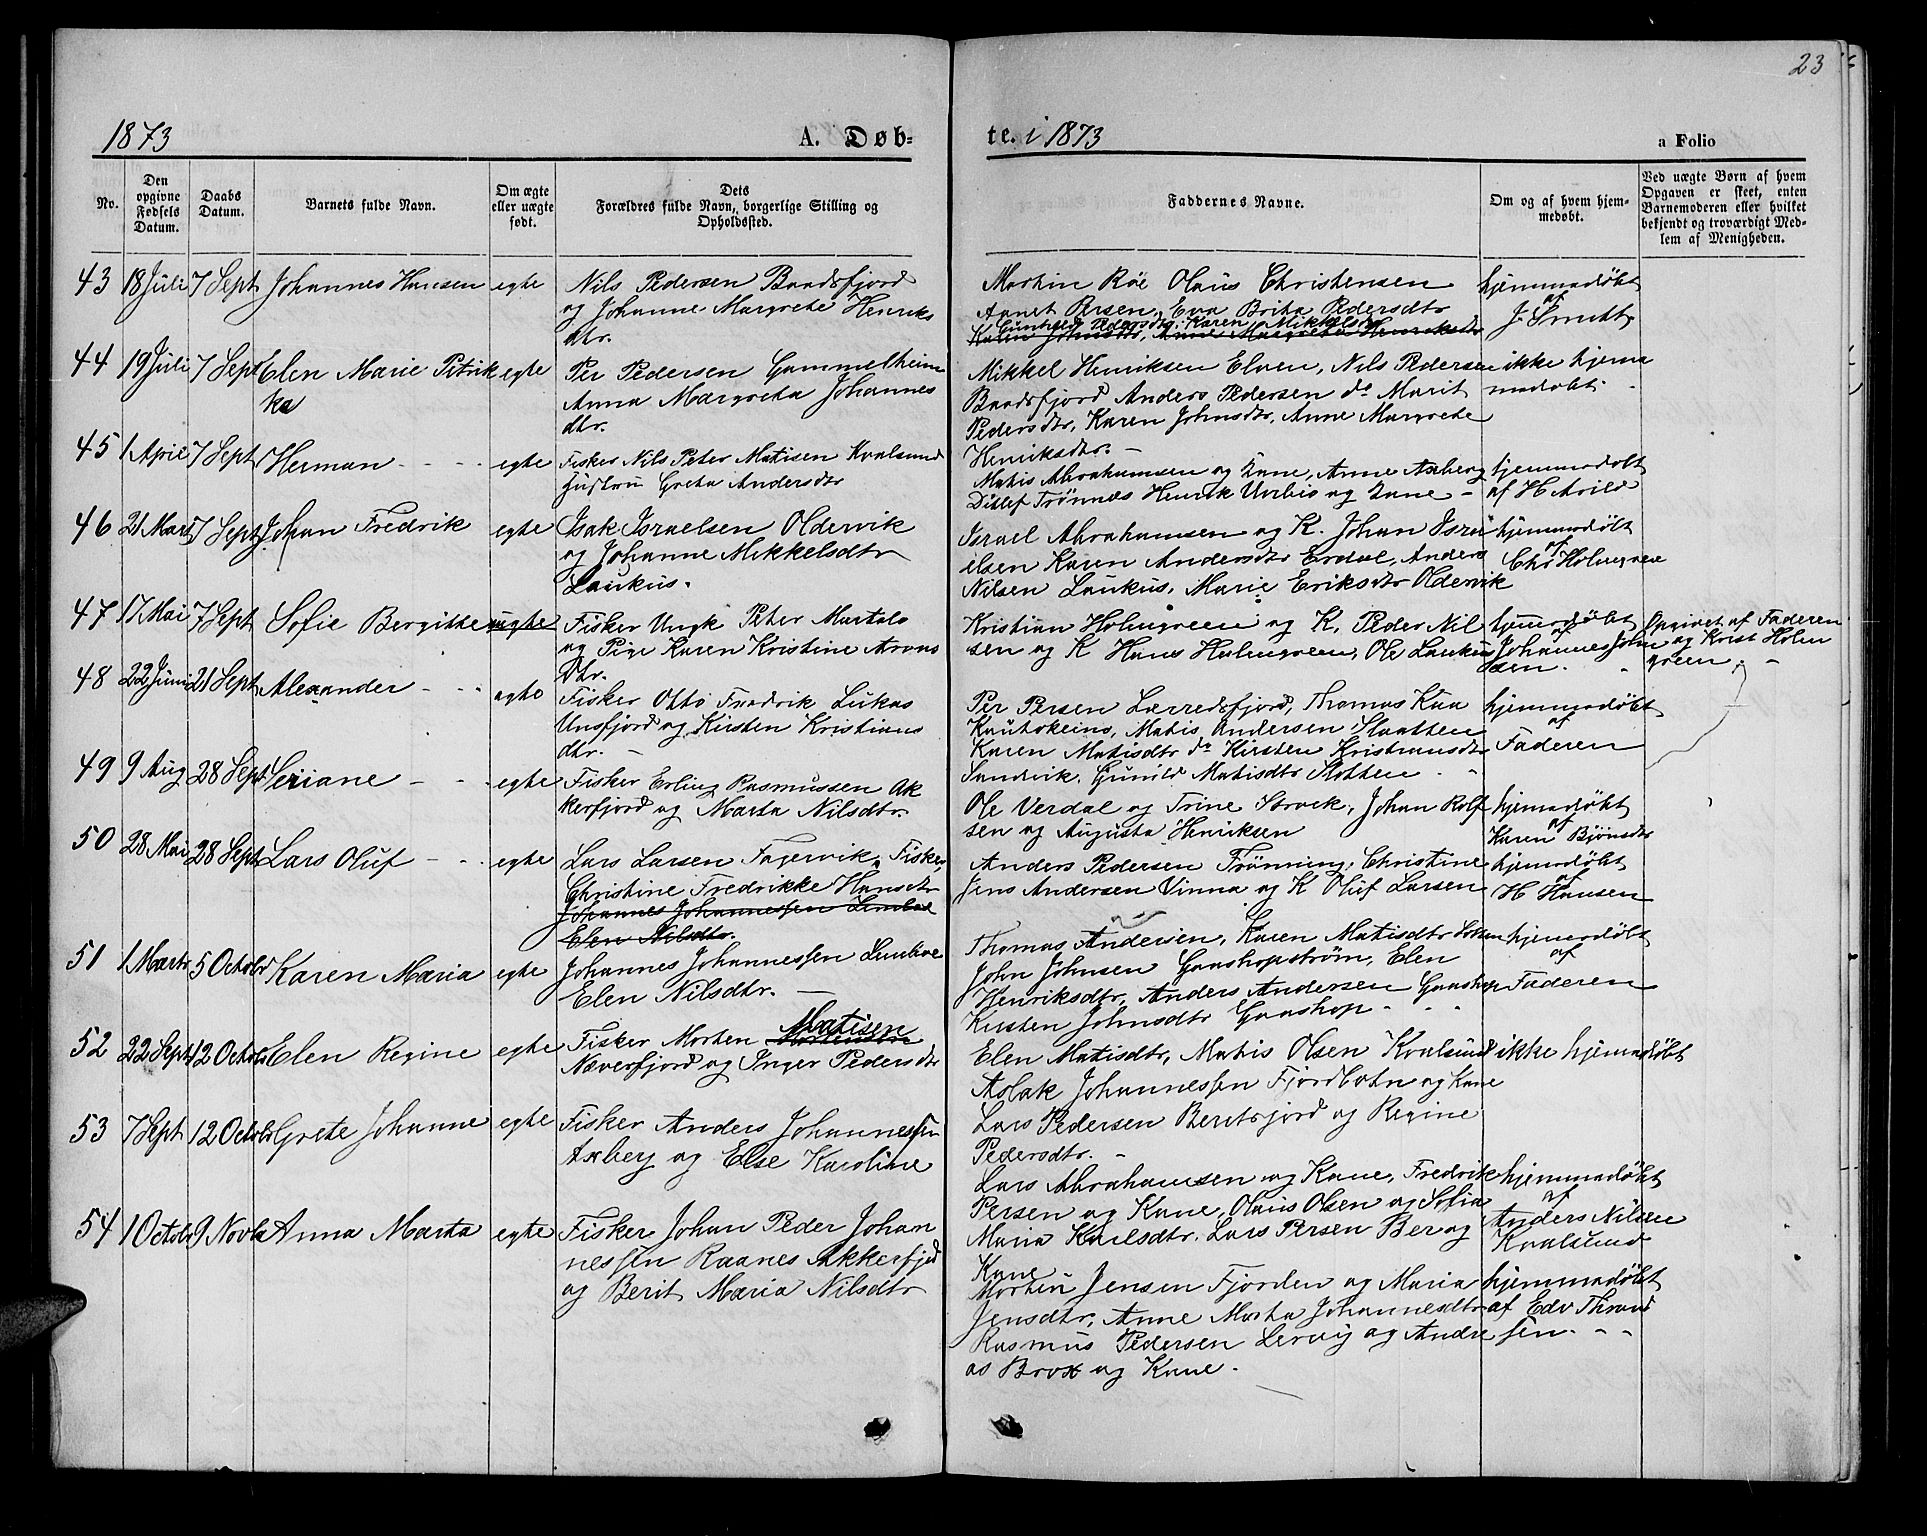 23
1873
A. Døb-
te. i 1873
a Folio
No.
Den opgivne Fødsels Datum.
Daabs Datum.
Barnets fulde Navn.
Om ægte eller uægte født.
Dets Forældres fulde Navn, borgerlige Stilling og Opholdssted.
Faddernes Navne.
Om og af hvem hjemmedøbt.
Ved uægte Børn af hvem Opgaven er skeet, enten Barnemoderen eller hvilket bekjendt og troværdigt Medlem af Menigheden.
43 18 Juli 7 Sept Johannes Hansen egte
Nils Pedersen Baadsfjord
og Johanne Margrete Henriks
dtr.
Martin Røe Olaus Christensen
Persen, Eva Brita Pedersdtr
Gunhild Pedersdtr, Karen Mikkelsdtr
hjemmedøbt
af
J. Smith
44 19 Juli 7 Sept Elen Marie Petrik
ke
egte
Per Pedersen Gammelheim
Anna Margreta Johannes
dtr.
Mikkel Henriksen Elven, Nils Pedersen
Baadsfjord Anders Pedersen do Marit
Pedersdtr, Karen Johnsdtr, Anne Margrete
Henriksdtr. -
ikke hjema
medøbt.
45 1 April 7 Sept Herman egte
Fisker Nils Peter Matisen Kvalsund
Hustru Greta Andersdtr
Matis Abrahamsen og Kane, Anne Axberg
Ditlef Trønnes Henrik Urbio og Kane -
hjemmedøbt
af H Avild
46 21 Marts 7 Sept Johan Fredrik egte
Isak Israelsen Oldervik
og Johanne Mikkelsdtr
Laukus.
Israel Abrahamsen og K. Johan Isra
elsen Karen Andersdtr Erdal, Anders
Nilsen Laukus, Marie Eriksdtr Oldervik
hjemmedøbt
af
Chr Holmgreen
47 17 Mai 7 Sept Sofie Bergitte uegte
Fisker Ungk Peter Martolo
og Pige Karen Kristine Arons
Dtr.
Kristian Holmgreen og K, Peder Nil
sen og K Hans Holmgreen, Ole Laukus
hjemedøbt
af
Johannes John
sen.
Opgivet af Faderen
og Krist Holm
green.
48 22 Juni 21 Sept Alexander egte
Fisker Otto Fredrik Lukas
Unsfjord og Kirsten Kristians
dtr.
Per Persen Lærredsfjord, Thomas Kaa
Kautokeino, Matis Andersen Slaatten
Karen Matisdtr do Kirsten Kristiansdtr
Sandvik, Gunild Matisdtr Slotten
hjemmedøbt
af
Faderen
49 9 Aug 28 Sept Seriane egte
Fisker Erling Rasmussen Ak
kerfjord og Marta Nilsdtr.
Ole Verdal og Trine Storvik, Johan Rolf
sen og Augusta Henriksen
hjemedøbt
af
Karen Bjønsdtr
50 28 Mai 28 Sept Lars Oluf egte
Lars Larsen Fagervik, Fisker,
Christine Fredrikke Hansdtr
Johannes Johannessen
Elen Nilsdtr.
Anders Pedersen Trønning, Christine
Jens Andersen Vinna og K Oluf Larsen
hjemedøbt
af
H Hansen
51 1 Marts 5 Octobr Karen Maria egte
Johannes Johannessen
Elen Nilsdtr.
Thomas Andersen, Karen Matisdtr
John Johnsen Gaashopstrøm, Elen
Henriksdtr, Anders Andersen Gaashop
Kirsten Johnsdtr Gaashop
hjemedøbt
af
Faderen
52 22 Sept 12 Octob Elen Regine egte
Matisen
Fisker Morten
Næverfjord og Inger Pedersdtr
Elen Matisdtr, Matis Olsen Kvalsund
Aslak Johannessen Fjordbotn og Kane
Lars Pedersen Beritsfjord og Regine
Pedersdtr. -
ikke hjemedøbt
53 7 Sept 12 Octobr Grete Johanne egte
Fisker Anders Johannessen
Axberg og Else Karoline
Lars Abrahamsen og Kane, Fredrik
Persen og Kane, Olaus Olsen og Sofia
Maria Karlsdtr. Lars Persen Ber og
Kane
hjemmedøbt
af
Anders Nilsen
Kvalsund
54 1 Octobr 9 Novbr Anna Marta egte
Fisker Johan Peder Johan
nessen Raanes Akkerfjd
og Berit Maria Nilsdtr
Morten Jensen Fjorden og Maria
Jensdtr, Anne Marta Johannesdtr
Rasmus Pedersen Lervig og Andre
as Brox og Kane.
hjemmedøbt
af Edv Thomas
sen.